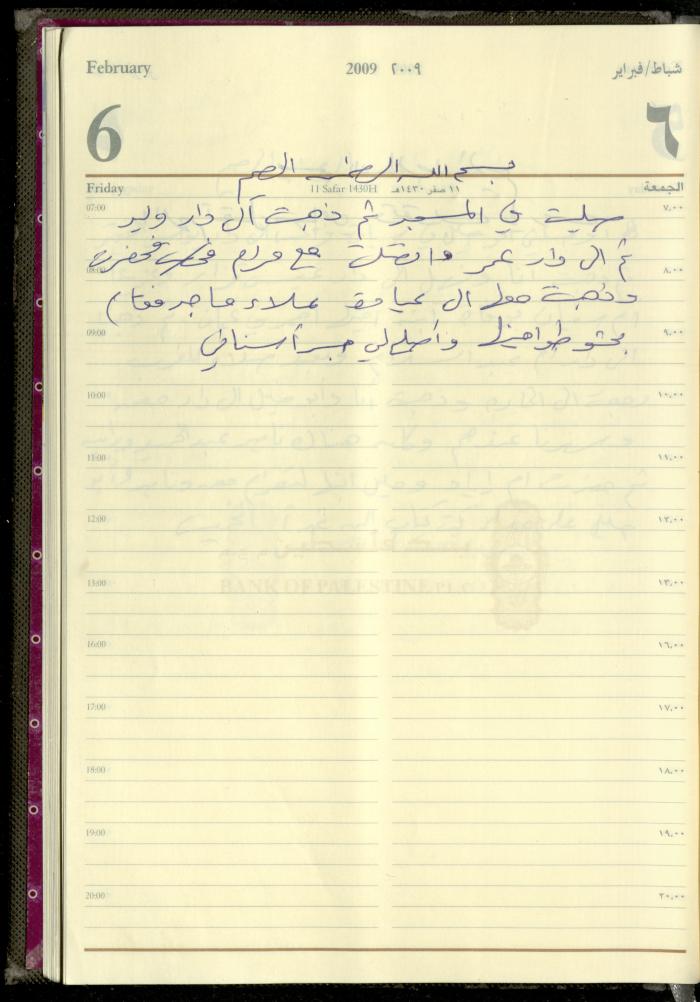 February 2009 ٢٠٠٩ شباط/فبراير
6 ٦
بسم الله الرحمن الرحيم
Friday 11 Safar 1430H ١١ صفر ١٤٣٠هـ الجمعة
07:00 ٧,٠٠
صليت في المسجد ثم ذهبت الى دار وليد
ثم الى دار عمر واتصلت مع مرام فحضرت
08:00 ٨,٠٠
وذهبت معها الى عيادة علاء ماجد
09:00 ٩,٠٠
طواحينها وأصلح لي جسر أسناني
10:00 ١٠,٠٠
11:00 ١١,٠٠
12:00 ١٢,٠٠
BANK OF PALESTINE
13:00 ١٣,٠٠
16:00 ١٦,٠٠
17:00 ١٧,٠٠
18:00 ١٨,٠٠
19:00 ١٩,٠٠
20:00 ٢٠,٠٠